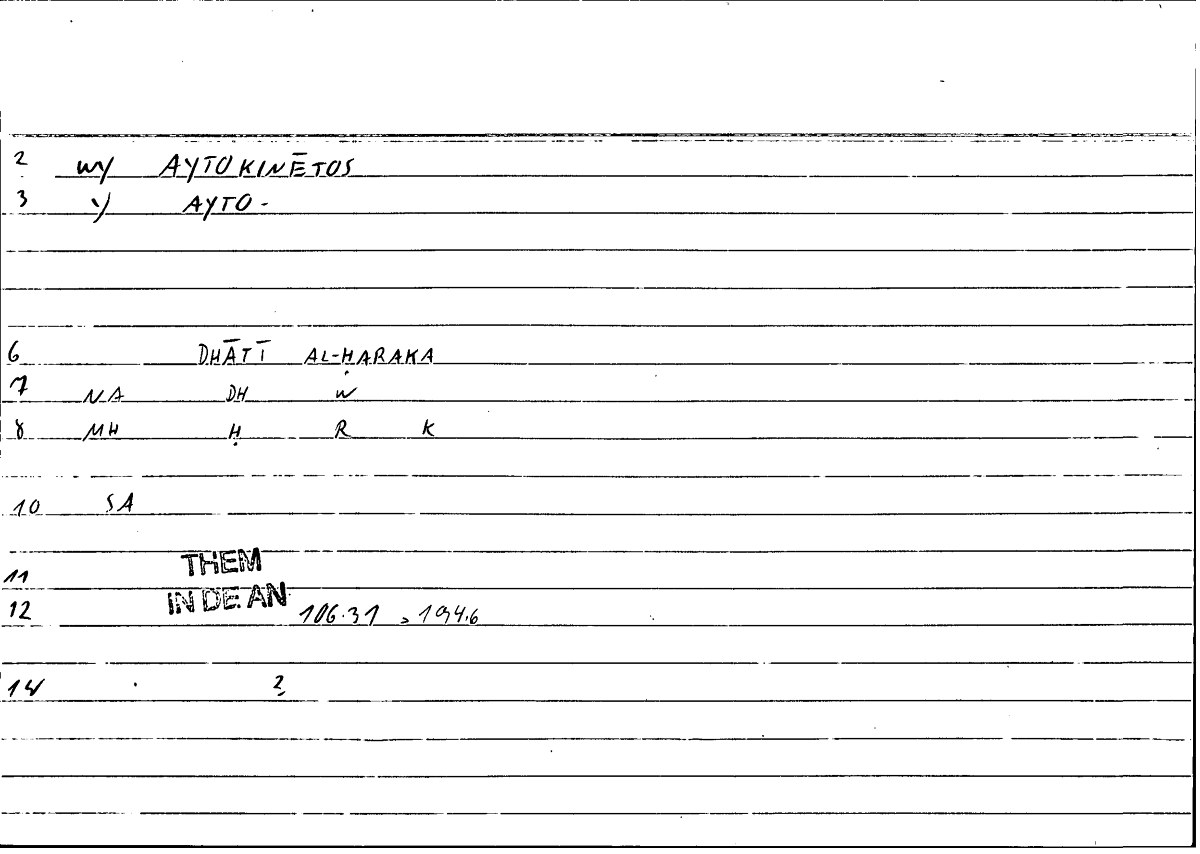 2 wy AYTOKINĒTOS
3 y AYTO-
6 DHĀTĪ AL-ḤARAKA
7 NA DH W
8 MH Ḥ R K
10 SA
11 THEM
12 IN DE AN 106.31 , 194.6
14 2